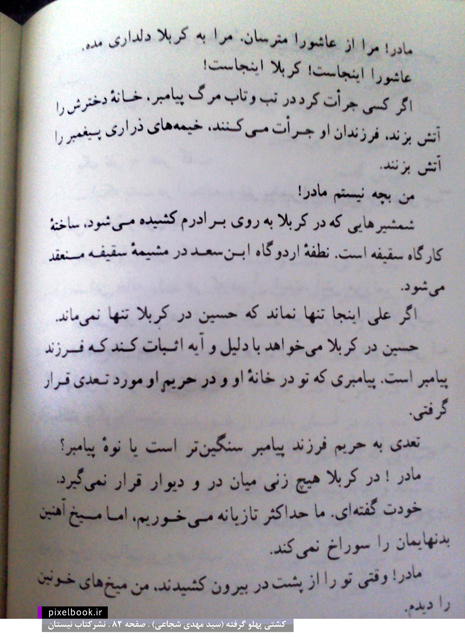 مادر! مرا از عاشورا مترسان. مرا به کربلا دلداری مده.
عاشورا اینجاست! کربلا اینجاست!
اگر کسی جرأت کرد در تب و تاب مرگ پیامبر، خانهٔ دخترش را
آتش بزند، فرزندان او جرأت می‌کنند، خیمه‌های ذراری پیغمبر را
آتش بزنند.
من بچه نیستم مادر!
شمشیرهایی که در کربلا به روی برادرم کشیده می‌شود، ساختهٔ
کارگاه سقیفه است. نطفهٔ اردوگاه ابن‌سعد در مشیمهٔ سقیفه منعقد
می‌شود.
اگر علی اینجا تنها نماند که حسین در کربلا تنها نمی‌ماند.
حسین در کربلا می‌خواهد با دلیل و آیه اثبات کند که فرزند
پیامبر است. پیامبری که تو در خانهٔ او و در حریم او مورد تعدی قرار
گرفتی.
تعدی به حریم فرزند پیامبر سنگین‌تر است یا نوهٔ پیامبر؟
مادر! در کربلا هیچ زنی میان در و دیوار قرار نمی‌گیرد.
خودت گفته‌ای. ما حداکثر تازیانه می‌خوریم، اما میخ آهنین
بدنهایمان را سوراخ نمی‌کند.
مادر! وقتی تو را از پشت در بیرون کشیدند، من میخ‌های خونین
را دیدم.
pixelbook.ir
کشتی پهلو گرفته (سید مهدی شجاعی) . صفحه ۸۲ . نشرکتاب نیستان